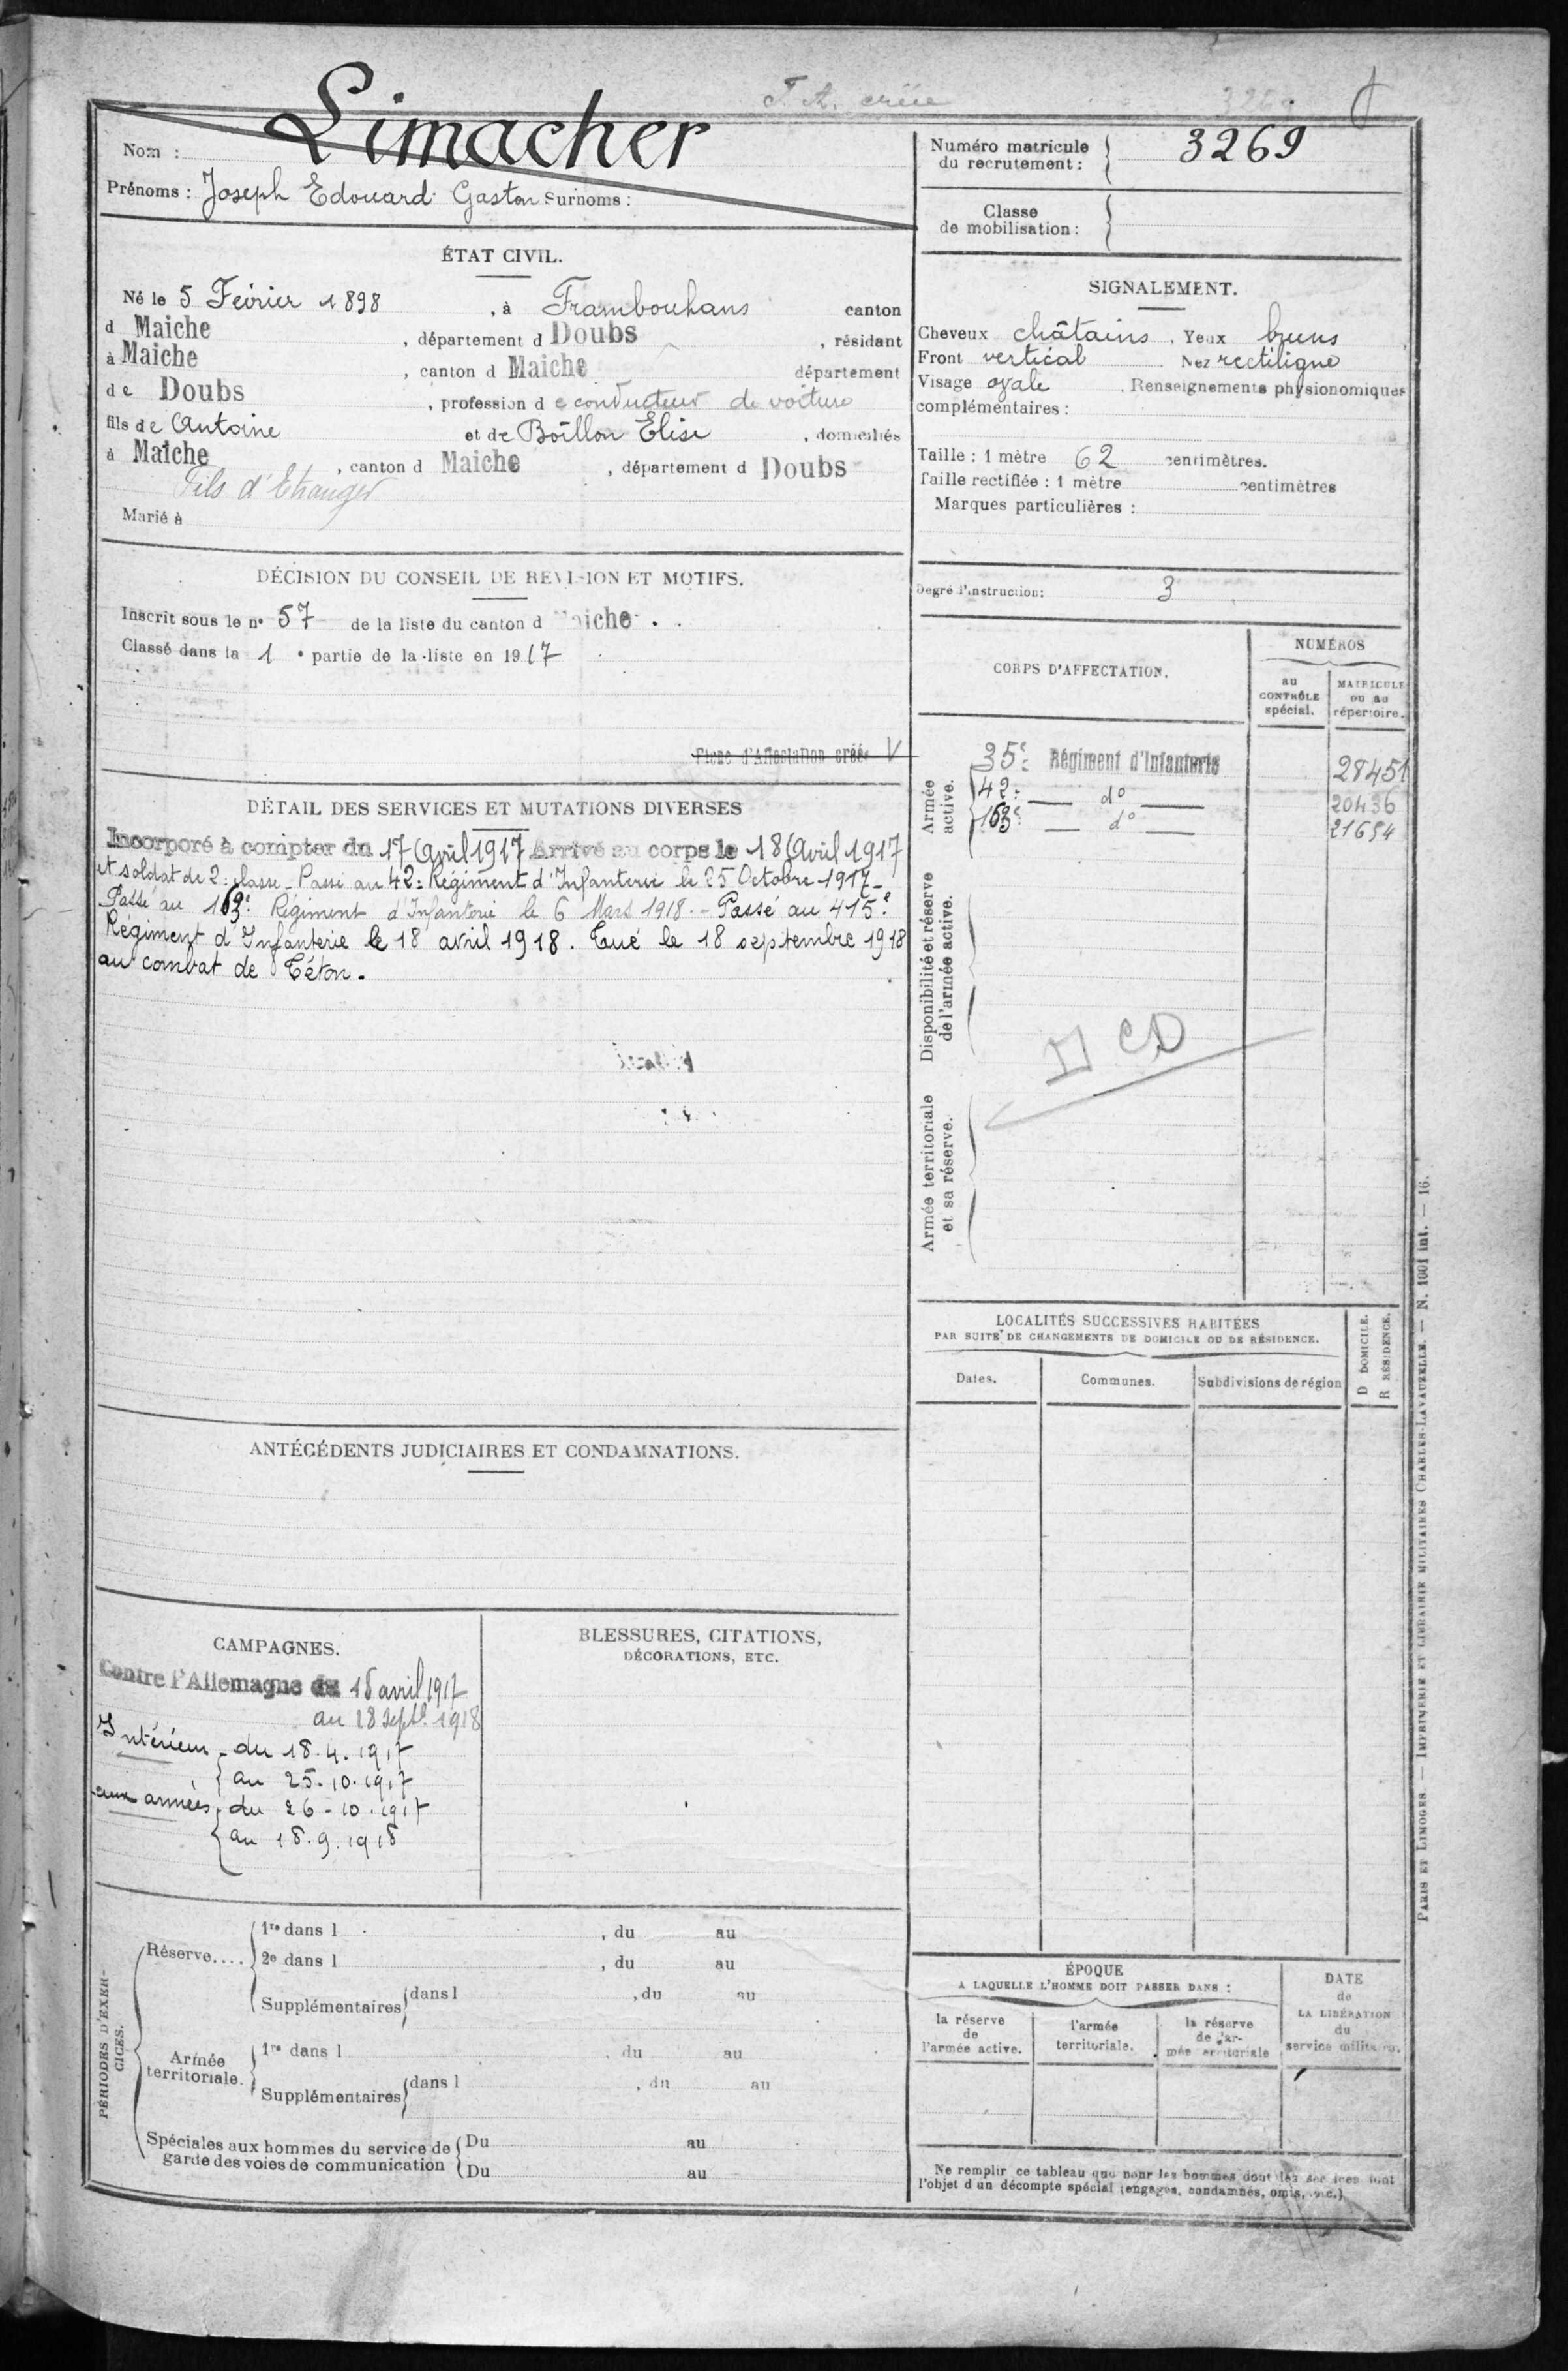 F. A. créée
Nom : Limacher
Prénoms : Joseph Edouard Gaston Surnoms :
Numéro matricule
du recrutement : 3269
Classe
de mobilisation :
ÉTAT CIVIL.
Né le 5 Février 1898, à Frambouhans canton
d Maiche, département d Doubs, résidant
à Maiche, canton d Maiche département
de Doubs, profession de conducteur de voiture
fils de Antoine et de Boillon Elise, domiciliés
à Maîche, canton d Maiche, département d Doubs
Fils d'Etranger
Marié à
SIGNALEMENT.
Cheveux châtains, Yeux bruns
Front vertical Nez rectiligne
Visage ovale. Renseignements physionomiques
complémentaires :
Taille : 1 mètre 62 centimètres.
Taille rectifiée : 1 mètre centimètres
Marques particulières :
Degré d'instruction: 3
DÉCISION DU CONSEIL DE REVISION ET MOTIFS.
Inscrit sous le n° 57 de la liste du canton d Maiche.
Classé dans la 1 e partie de la liste en 1917
Fiche d'Affectation créée V
CORPS D'AFFECTATION.
NUMÉROS
au
CONTRÔLE
spécial.
MATRICULE
ou au
répertoire.
Armée
active.
35e Régiment d'Infanterie 28451
42e — d° — 20436
163e — d° — 21654
Disponibilité et réserve
de l'armée active.
CD
Armée territoriale
et sa réserve.
DÉTAIL DES SERVICES ET MUTATIONS DIVERSES
Incorporé à compter du 17 Avril 1917 Arrivé au corps le 18 Avril 1917
et soldat de 2e classe - Passé au 42e Régiment d'Infanterie le 25 Octobre 1917 -
Passé au 163e Régiment d'Infanterie le 6 Mars 1918. - Passé au 415e
Régiment d'Infanterie le 18 avril 1918. Tué le 18 septembre 1918
au combat de Téton.
ANTÉCÉDENTS JUDICIAIRES ET CONDAMNATIONS.
LOCALITÉS SUCCESSIVES HABITÉES
PAR SUITE DE CHANGEMENTS DE DOMICILE OU DE RÉSIDENCE.
Dates.
Communes.
Subdivisions de région
D DOMICILE.
R RÉSIDENCE.
CAMPAGNES.
Contre l'Allemagne du 18 avril 1917
au 18 septbe 1918
Intérieur du 18.4.1917
au 25.10.1917
aux armées du 26-10.1917
au 18.9.1918
BLESSURES, CITATIONS,
DÉCORATIONS, ETC.
PÉRIODES D'EXER-
CICES.
Réserve....
1re dans l , du au
2e dans l , du au
Supplémentaires dans l , du au
Armée
territoriale.
1re dans l , du au
Supplémentaires dans l , du au
Spéciales aux hommes du service de
garde des voies de communication
Du au
Du au
ÉPOQUE
A LAQUELLE L'HOMME DOIT PASSER DANS :
la réserve
de
l'armée active.
l'armée
territoriale.
la réserve
de l'ar-
mée territoriale
DATE
de
LA LIBÉRATION
du
service militaire.
Ne remplir ce tableau que pour les hommes dont les services font
l'objet d'un décompte spécial (engagés, condamnés, omis, etc.)
PARIS ET LIMOGES. — IMPRIMERIE ET LIBRAIRIE MILITAIRES CHARLES-LAVAUZELLE. — N. 1001 int. — 16.